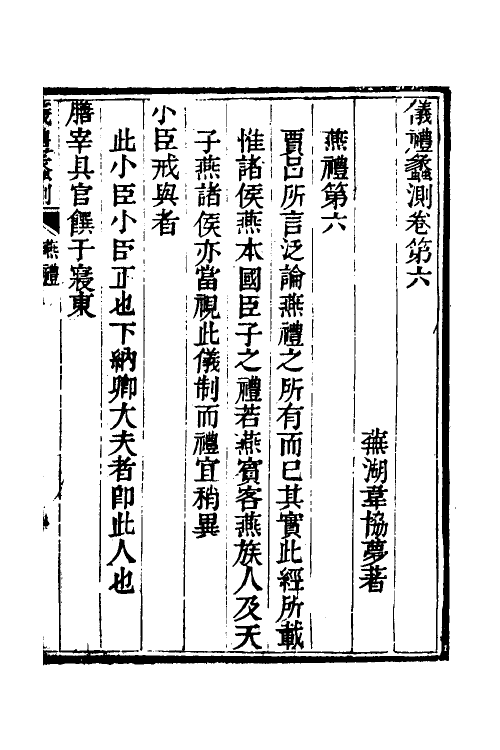 儀禮蠡測卷第六
蕪湖韋協夢著
燕禮第六
賈呂所言泛論燕禮之所有而已其實此經所載
惟諸侯燕本國臣子之禮若燕賓客燕族人及天
子燕諸侯亦當視此儀制而禮宜稍異
小臣戒與者
此小臣小臣正也下納卿大夫者即此人也
膳宰具官饌于寢東
儀禮蠡測
燕禮